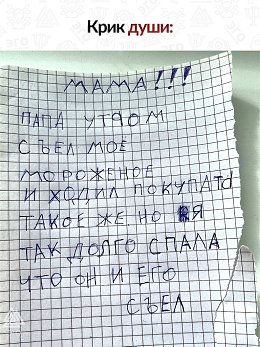 Крик души:
МАМА!!!
ПАПА УТРОМ
СЪЕЛ МОЁ
МОРОЖЕНОЕ
И ХОДИЛ ПОКУПАТЬ
ТАКОЕ ЖЕ. НО Я
ТАК ДОЛГО СПАЛА
ЧТО ОН И ЕГО
СЪЕЛ